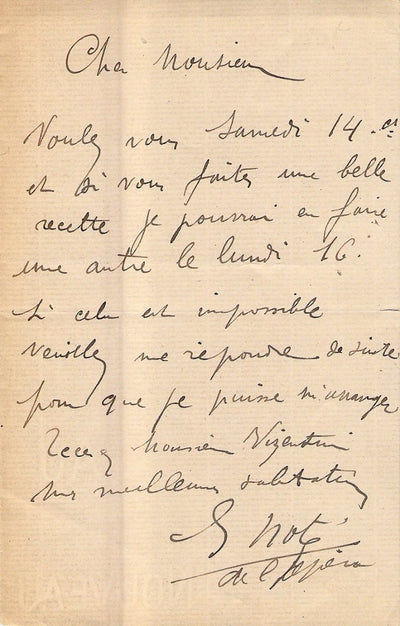 Cher Monsieur
Voulez vous Samedi 14.
et si vous faites une belle
recette je pourrai en faire
une autre le lundi 16.
Si cela est impossible
Veuillez me repondre de suite
pour que je puisse m'arranger
Recevez Monsieur Vizentini
mes meilleures salutations
Noté
de l'Opéra